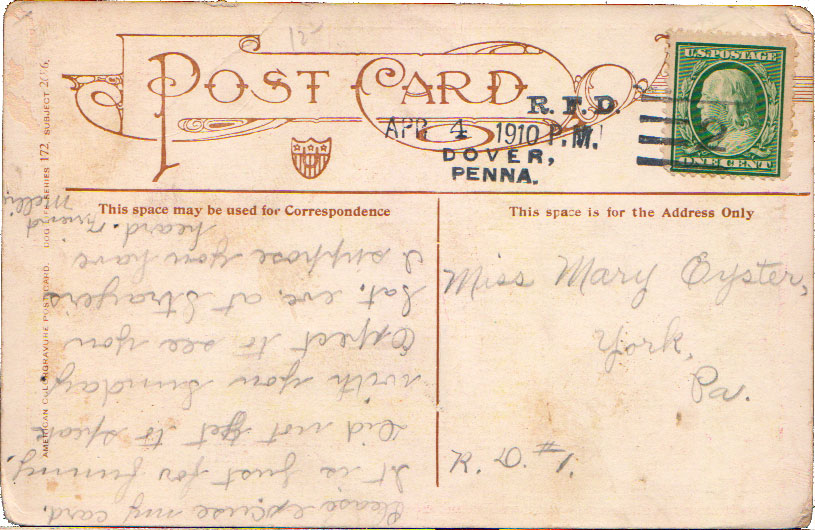 POST CARD
R.F.D.
APR 4 1910 P.M.
DOVER,
PENNA.
U.S. POSTAGE
2
ONE CENT
This space may be used for Correspondence
Please excuse my card.
It is just for funning.
Did not get to speak
with you Sunday
Expect to see you
Sat. eve, at Strayers
I suppose you have
heard.
Friend
Nellie
This space is for the Address Only
Miss Mary Oyster,
York,
Pa.
R. D. #1.
AMERICAN COLORGRAVURE POSTCARD. DOG SERIES 172, SUBJECT